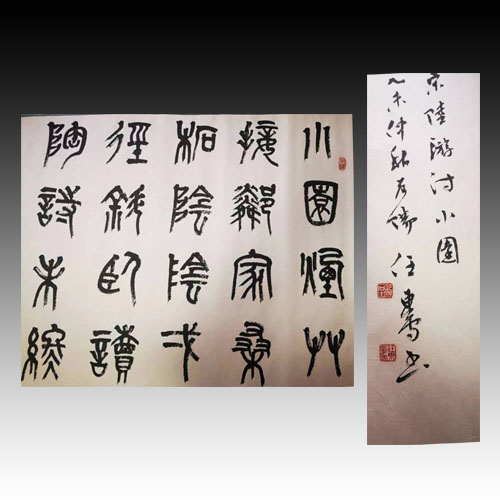 小園煙艸
接鄰家桑
柘陰陰弌
徑斜臥讀
陶詩未終
宋陸游詩小園
乙未仲秋 任 書